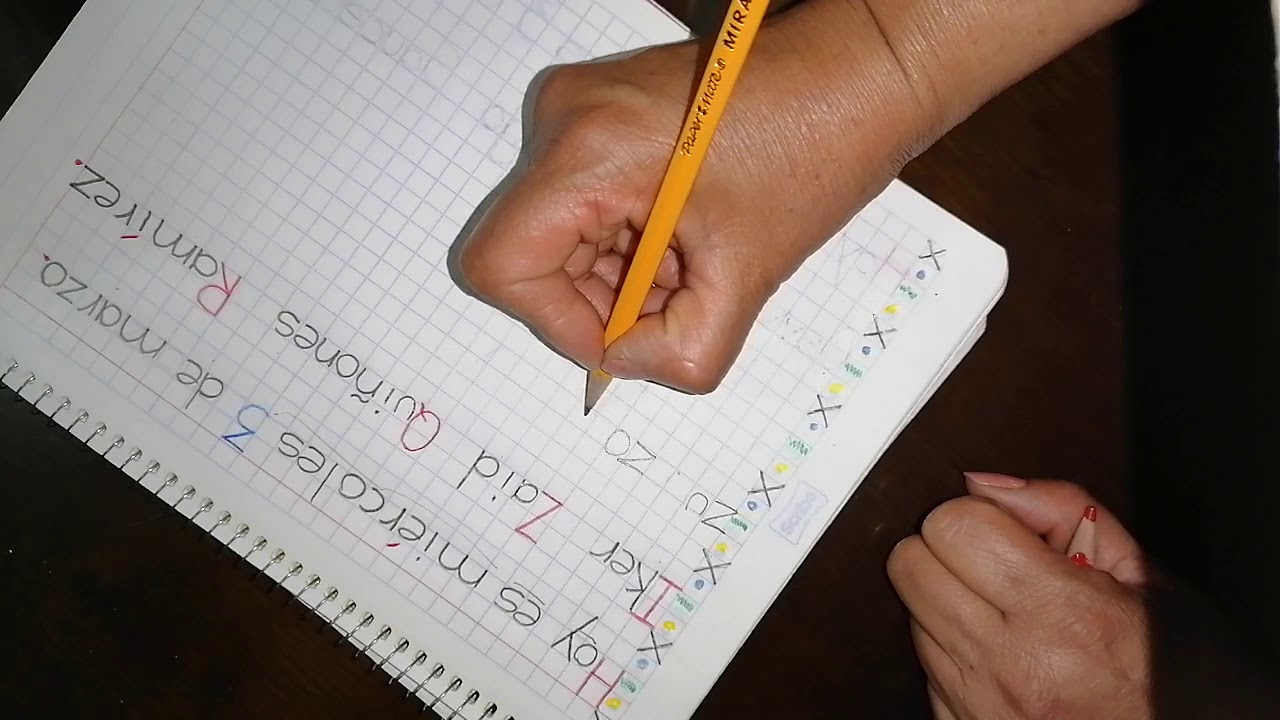 Hoy es miércoles 3 de marzo.
Iker Zaid Quiñones Ramírez.
Zu zo
PAPER MATE® MIRA